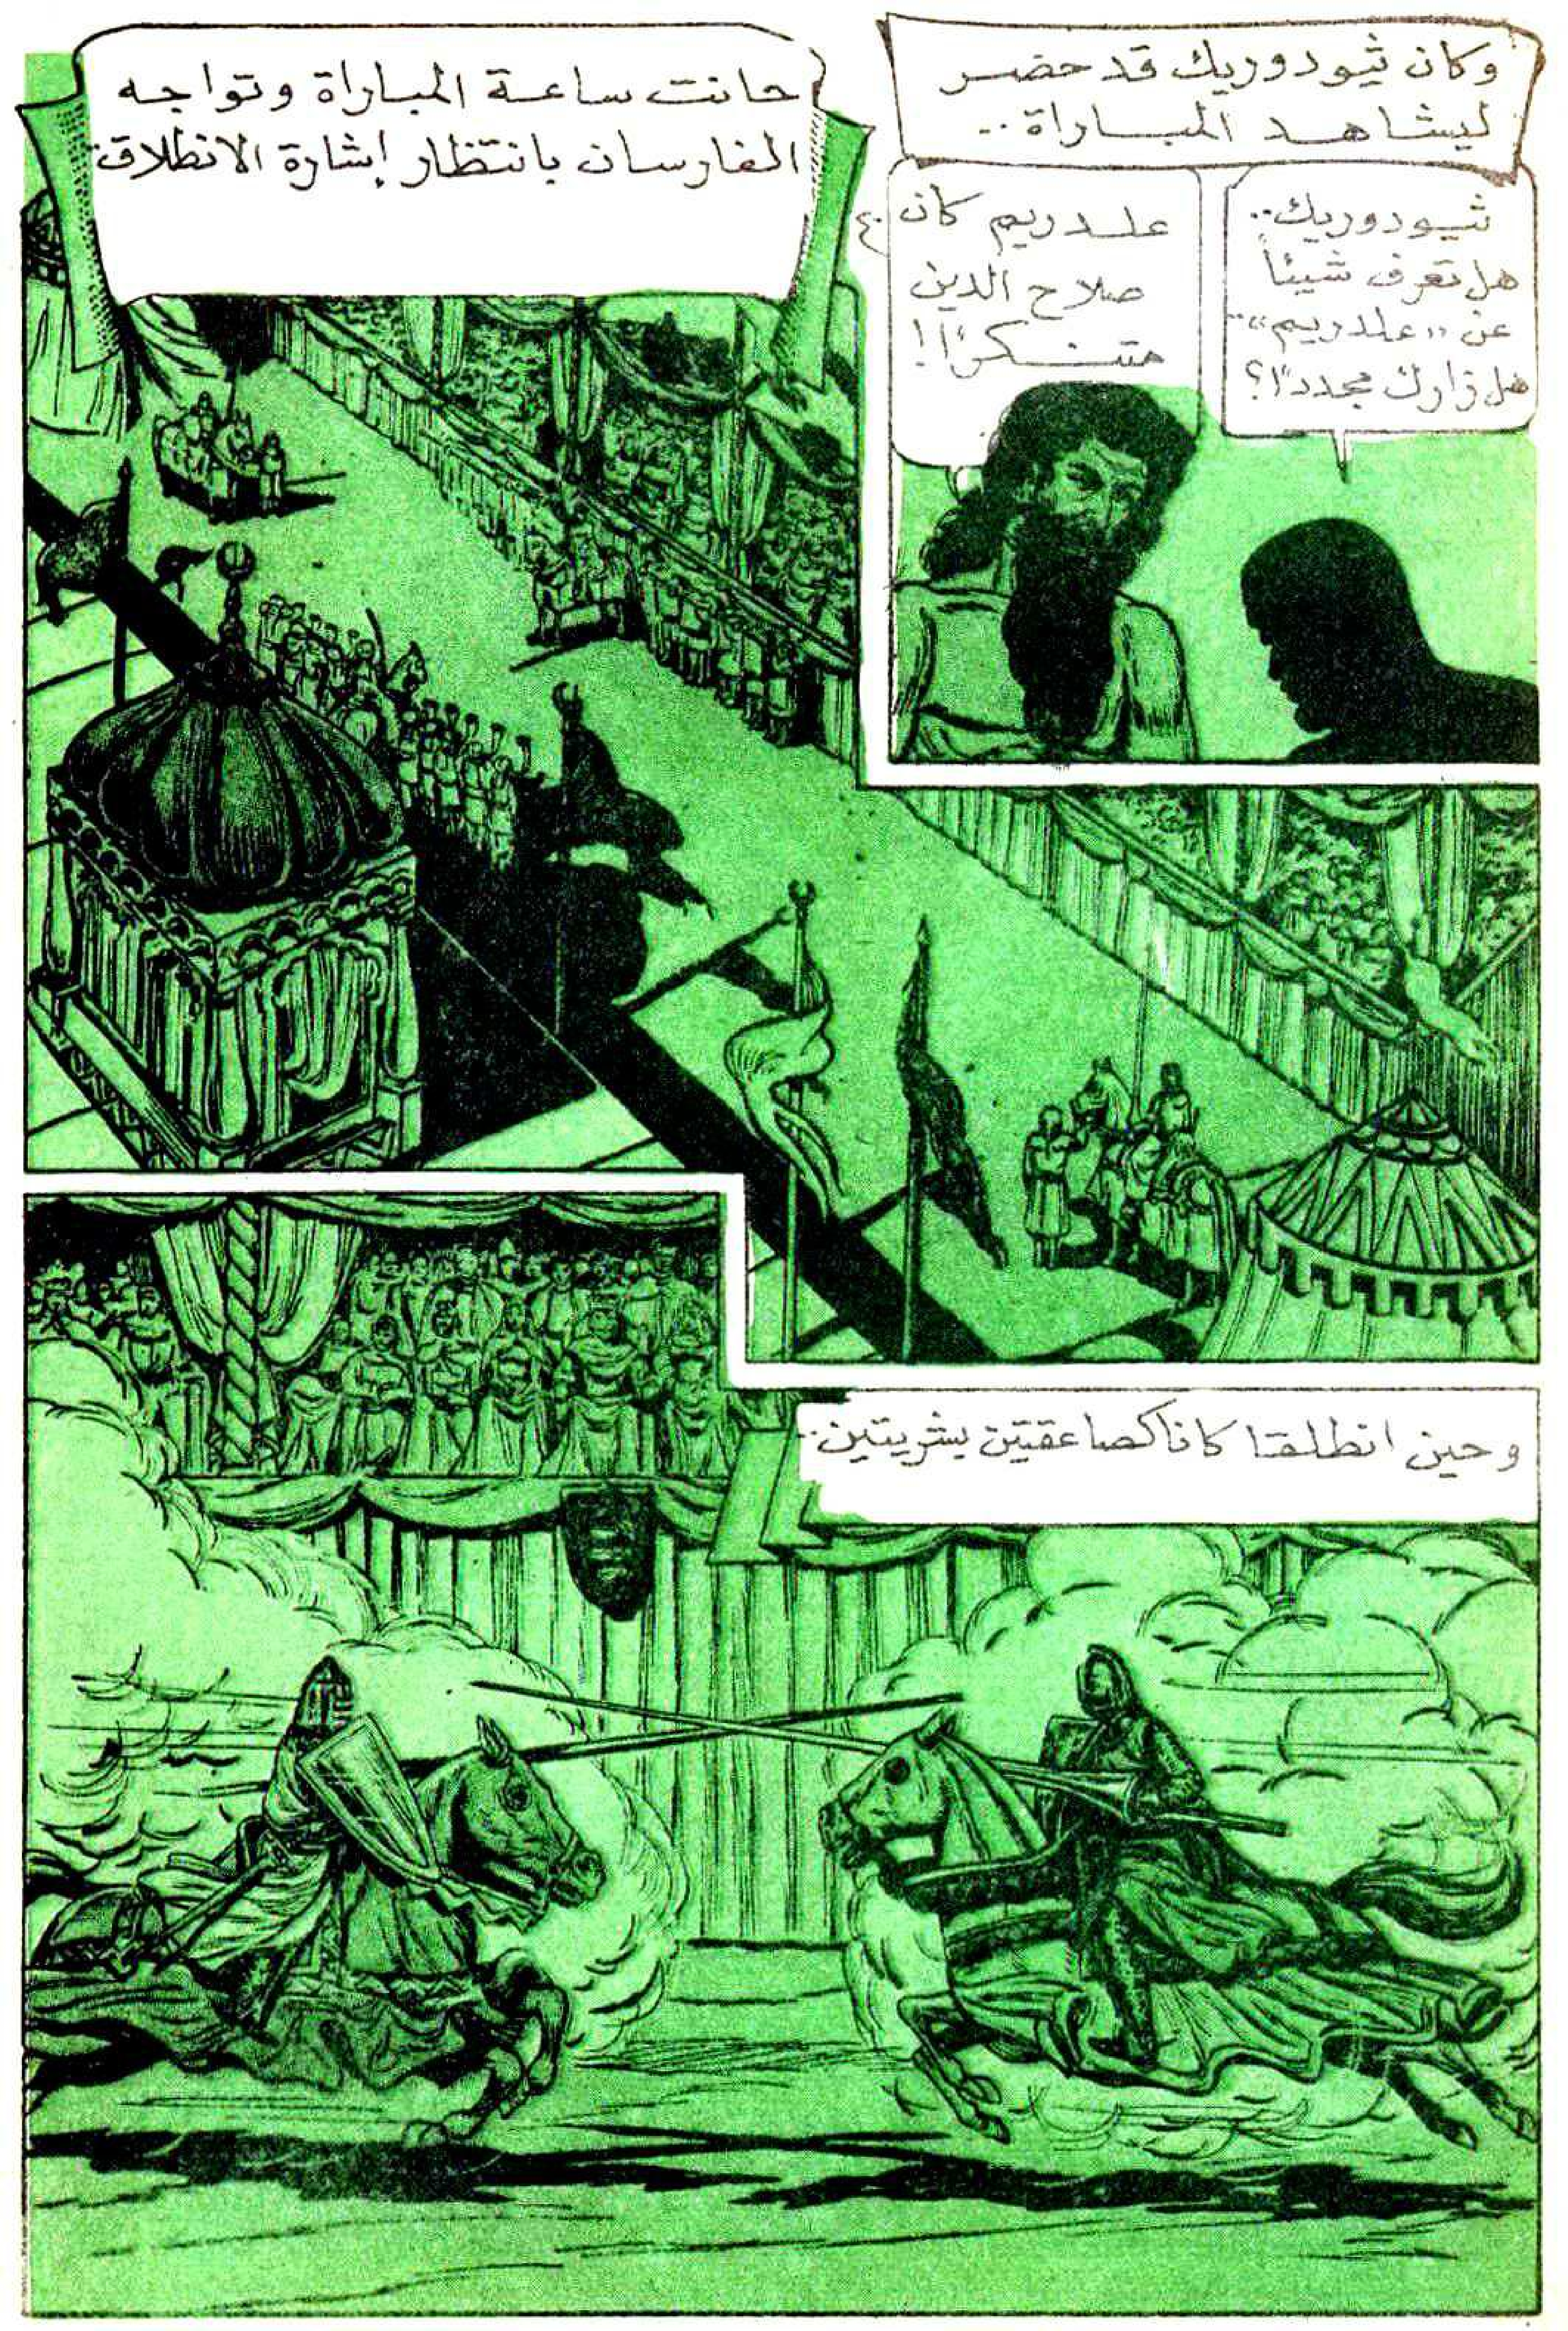 وكان ثيودوريك قد حضر
ليشاهد المباراة..
ثيودوريك..
هل تعرف شيئاً
عن «علدريم»..
هل زارك مجدداً؟
علدريم كان
صلاح الدين
متنكراً!
حانت ساعة المباراة وتواجه
الفارسان بانتظار إشارة الانطلاق..
وحين انطلقا كانا كصاعقتين بشريتين..